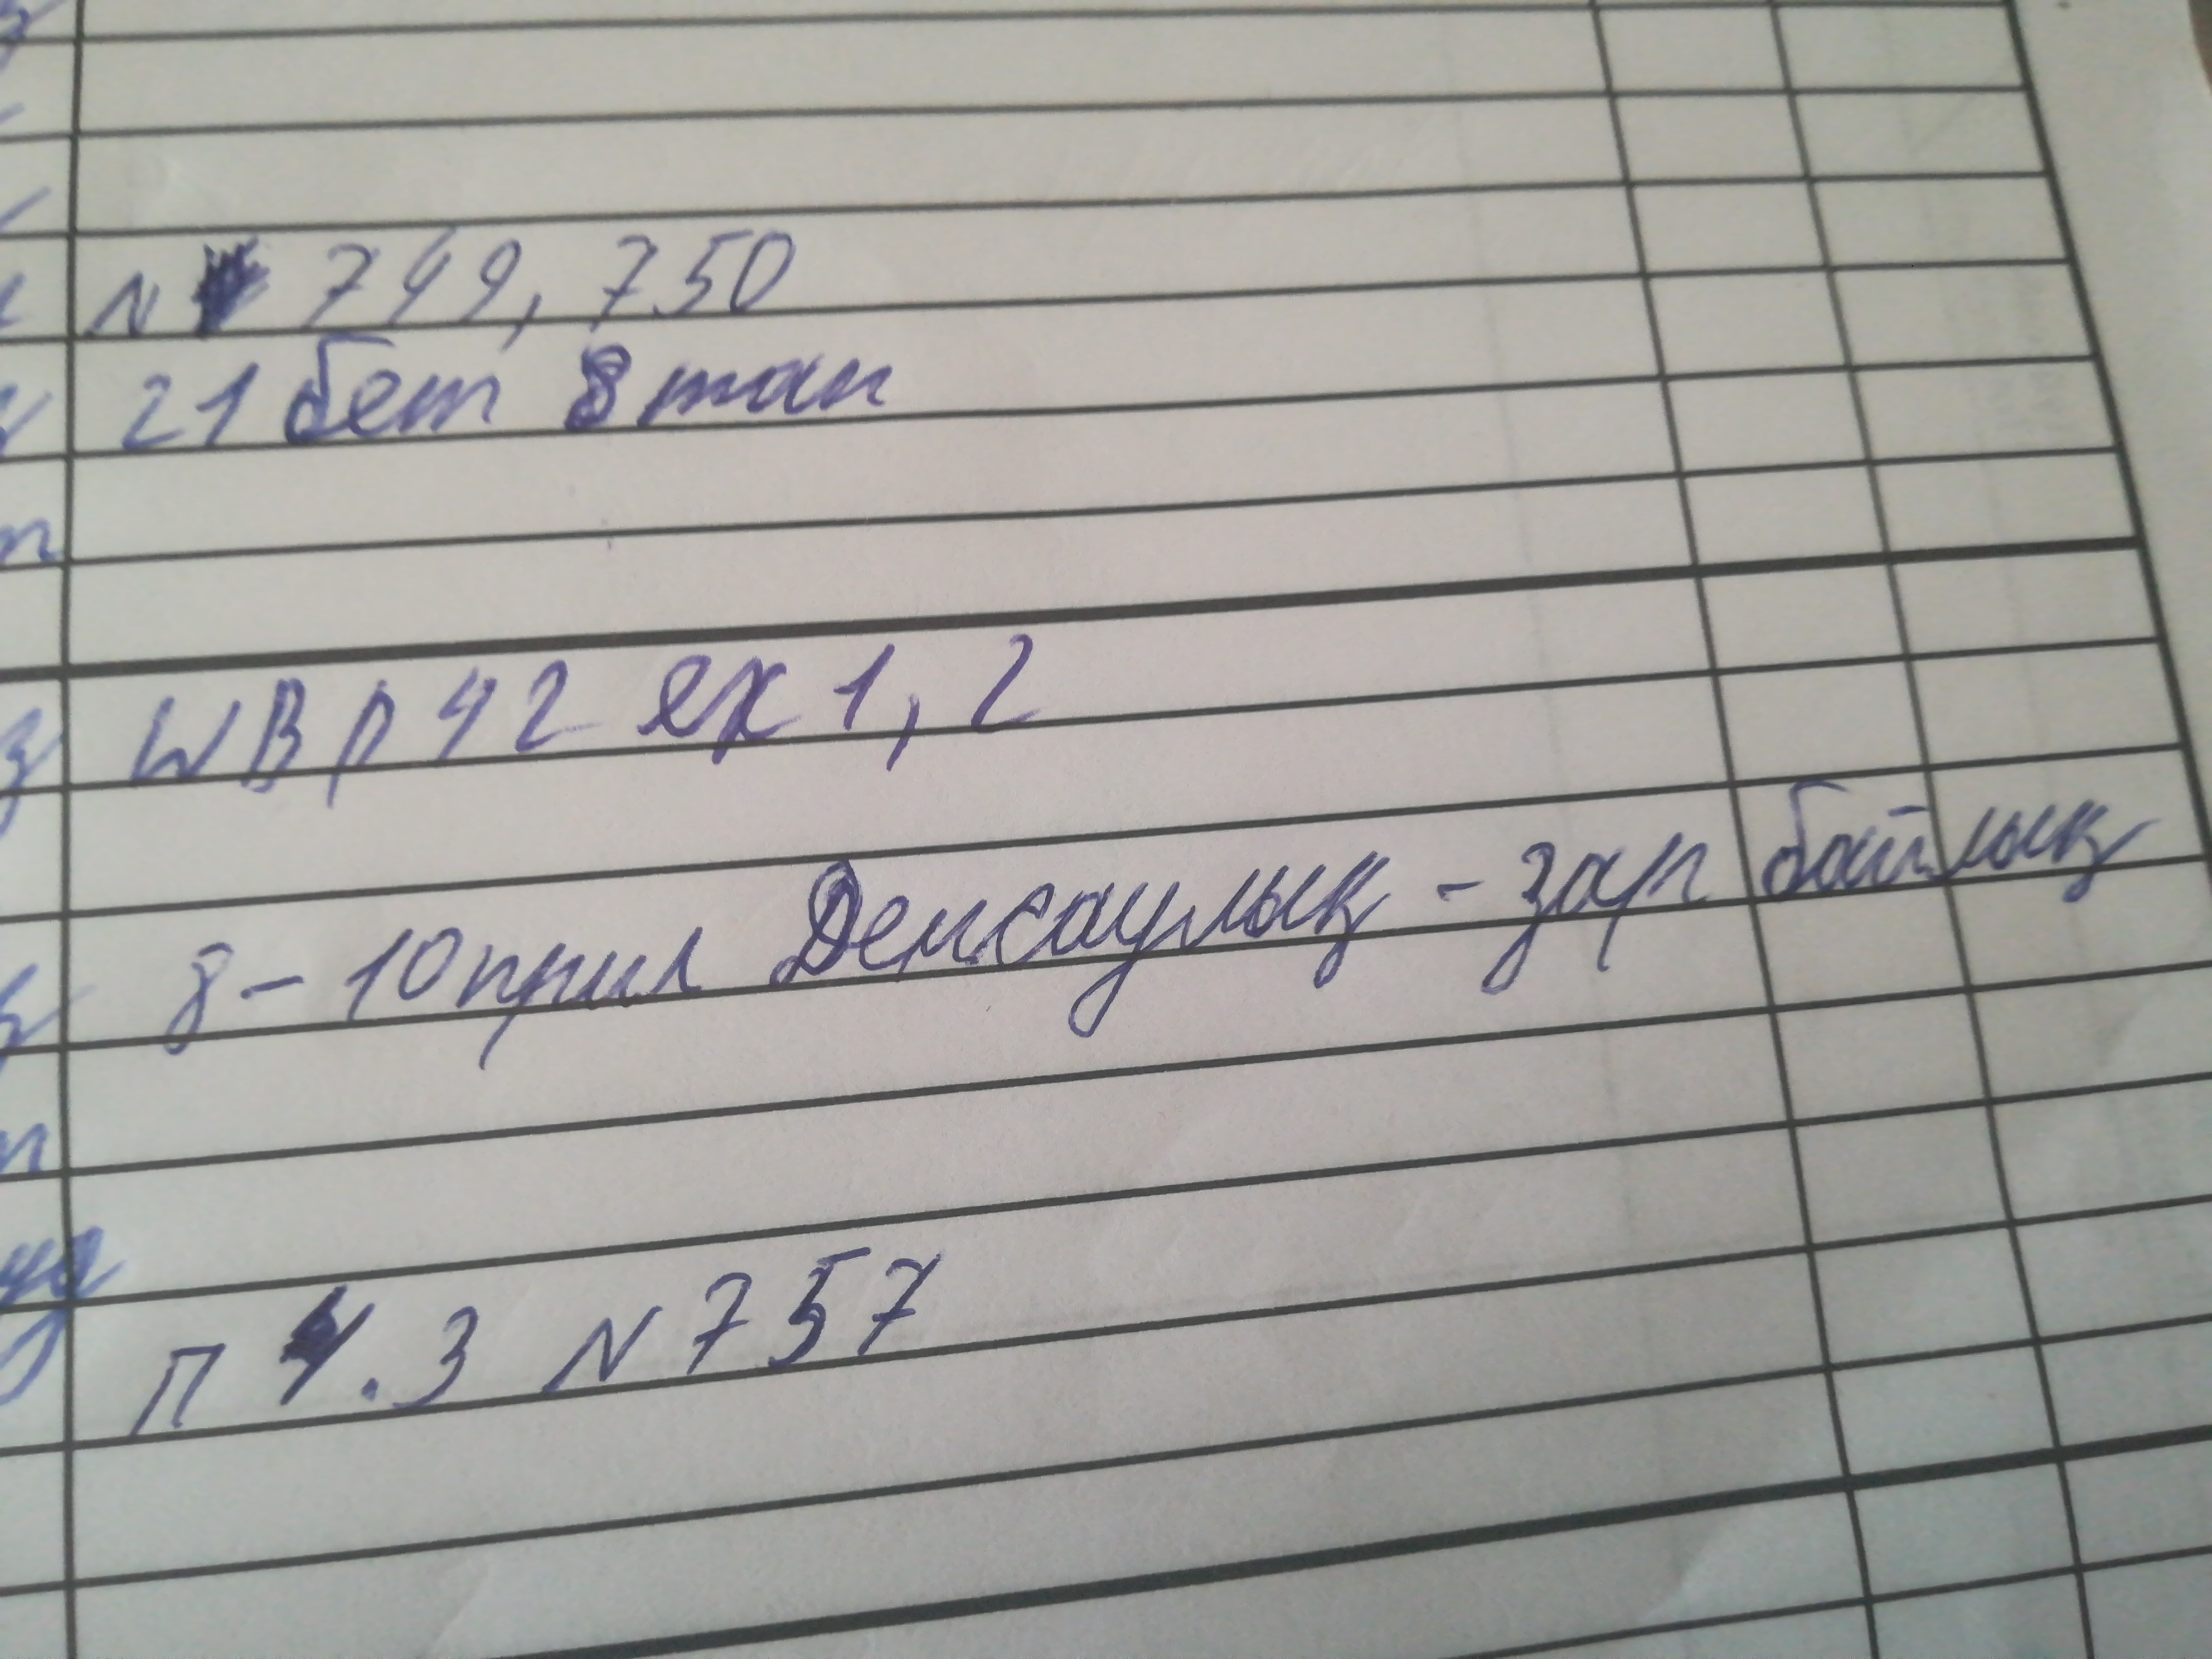 N 749, 750
21 бет 8 тап
WB p 42 ex 1, 2
8-10 прил Денсаулық - зор байлық
П 4.3 N 757